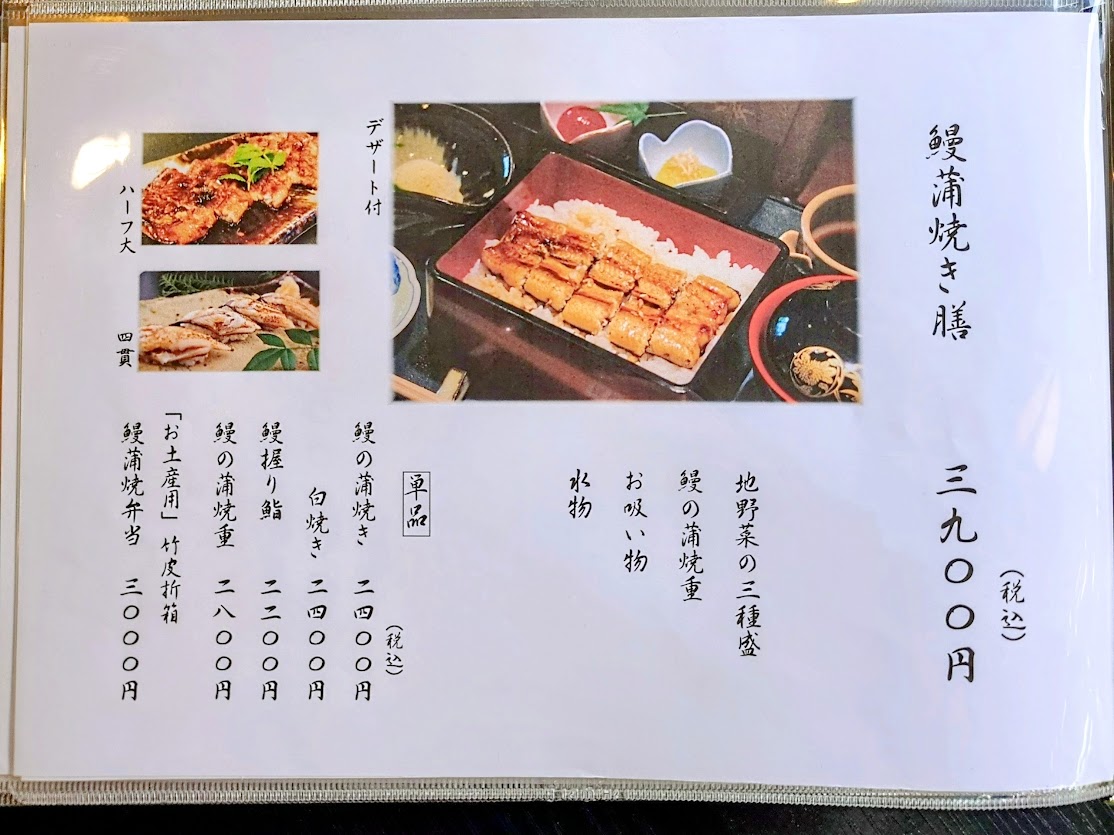 鰻蒲焼き膳 三九〇〇円
(税込)
地野菜の三種盛
鰻の蒲焼重
お吸い物
水物
デザート付
単品
(税込)
鰻の蒲焼き 二四〇〇円
白焼き 二四〇〇円
鰻握り鮨 二二〇〇円
鰻の蒲焼重 二八〇〇円
「お土産用」竹皮折箱
鰻蒲焼弁当 三〇〇〇円
ハーフ大
四貫